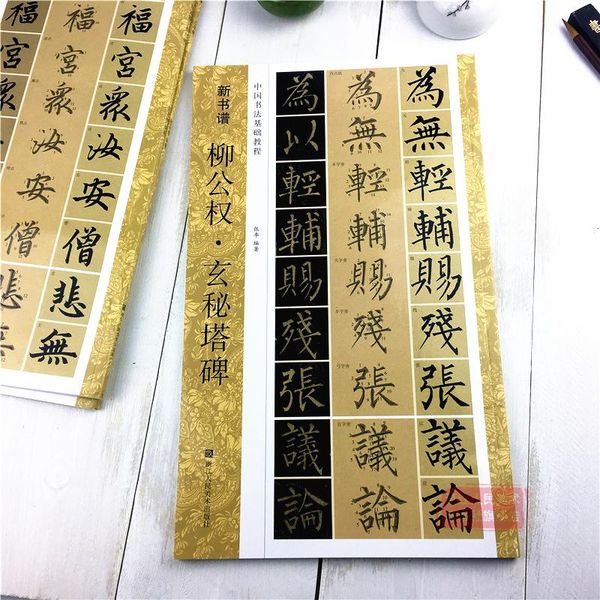 新书谱
柳公权·玄秘塔碑
中国书法基础教程
编著
浙江人民美术出版社
為 為 為
以 無 無
輕 輕 輕
輔 輔 輔
賜 賜 賜
殘 殘 殘
張 張 張
議 議 議
論 論 論
福 福
宮 宮
眾 眾
汝 汝
安 安
僧 僧
悲 悲
無